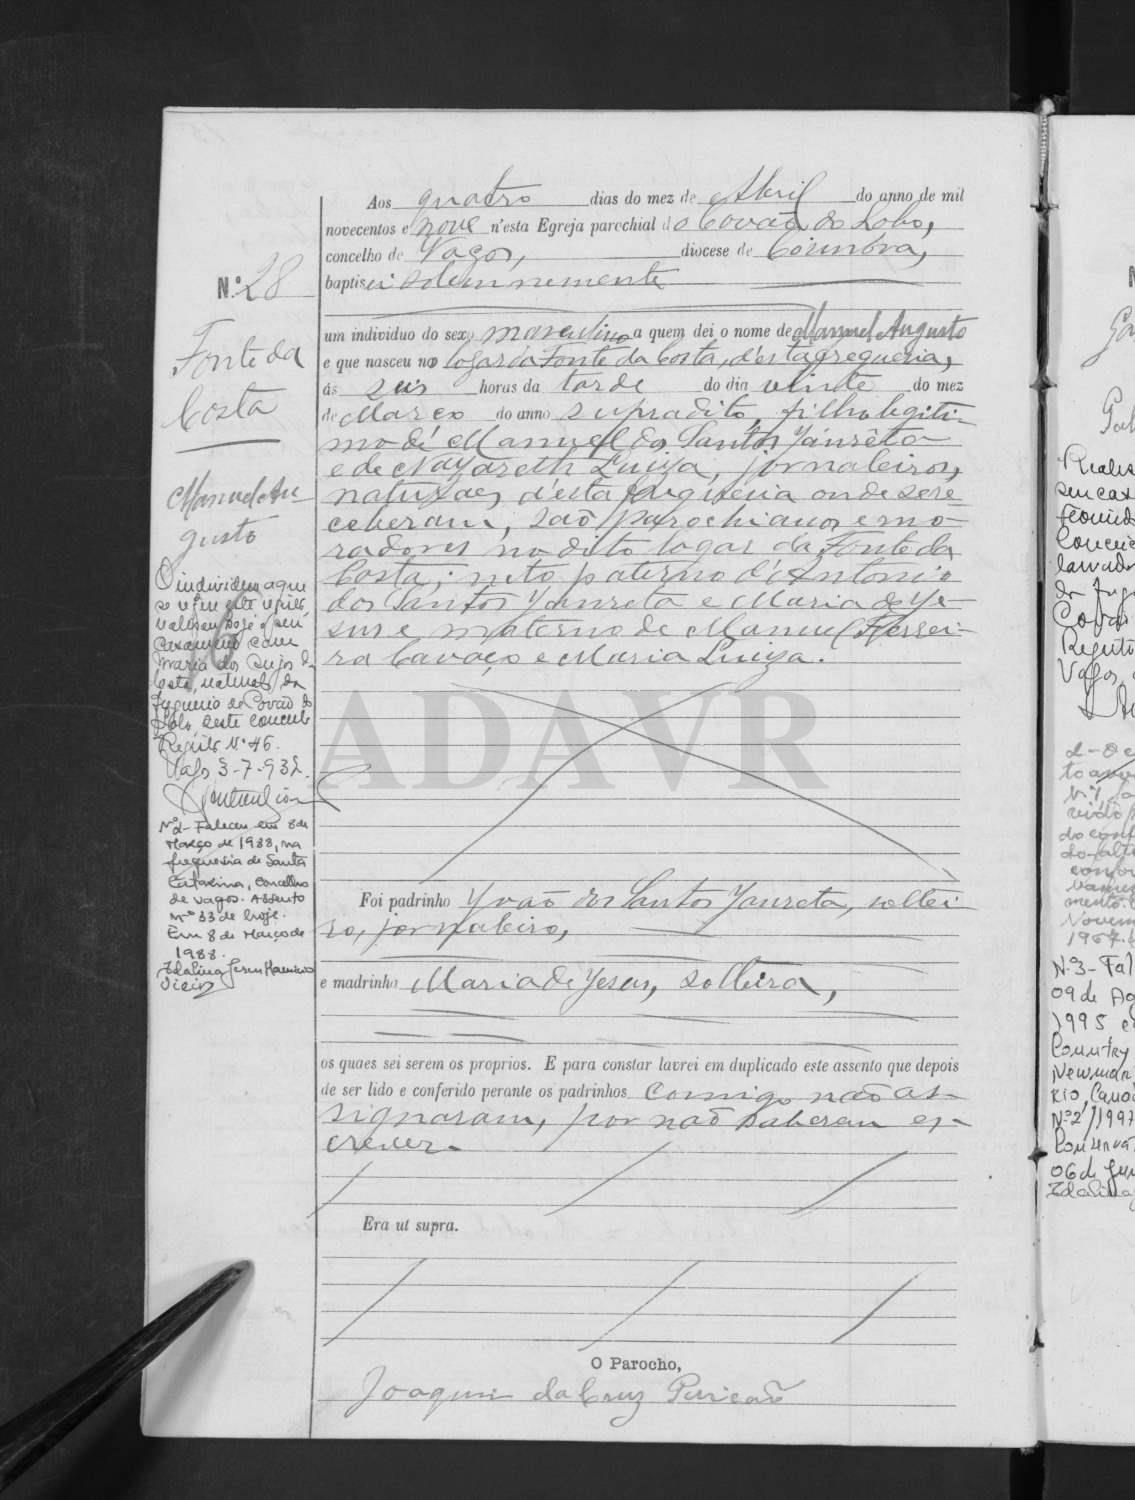 Aos quatro dias do mez de Abril do anno de mil
novecentos e nove n'esta Egreja parochial do Covão do Lobo,
concelho de Vagos, diocese de Coimbra,
baptisei solemnemente
um individuo do sexo masculino a quem dei o nome de Manuel Augusto
e que nasceu no logar da Fonte da Costa, d'esta freguesia,
ás seis horas da tarde do dia vinte do mez
de Março do anno supradito, filho legiti-
mo de Manuel dos Santos Janrêta
e de Nazareth Luiza, jornaleiros,
naturaes d'esta freguesia onde se re-
ceberam, são parochianos e mo-
radores no dito logar da Fonte da
Costa; neto paterno d'Antonio
dos Santos Janreta e Maria de Je-
sus e materno de Manuel Ferrei-
ra Cavaço e Maria Luiza.
Foi padrinho João dos Santos Janreta, soltei-
ro, jornaleiro,
e madrinha Maria de Jesus, solteira,
os quaes sei serem os proprios. E para constar lavrei em duplicado este assento que depois
de ser lido e conferido perante os padrinhos comigo não as-
signaram, por não saberem es-
crever.
Era ut supra.
O Parocho,
Joaquim da Cruz Pericão
N.º 28
Fonte da
Costa
Manuel Au-
gusto
16
O individuo a que
se refere este registo
realisou hoje o seu
casamento com
Maria dos Anjos da
Costa, natural da
freguesia de Covão do
Lobo, deste concelho
Registo Nº 46.
Vagos 3-7-932.
Nº2- Faleceu em 8 de
Março de 1988, na
freguesia de Santa
Catarina, concelho
de Vagos. Assento
nº 33 de hoje.
Em 8 de Março de
1988.
Idalina
Vieira
ADAVR
Nº3- Fal
09 de Ag
1995
Country
Nº2/1997
06 de